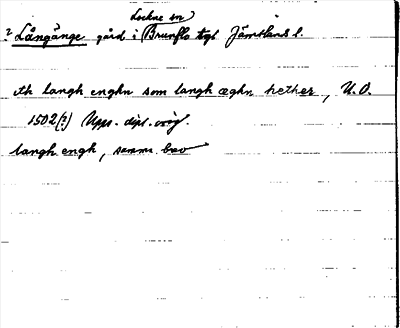 Lockne sn
? Långänge gård i Brunflo tgl Jämtlands l.
eth langh enghn som langh æghn hether, U.O.
1502(?) Upps. dipl. orig.
langh engh, samma brev